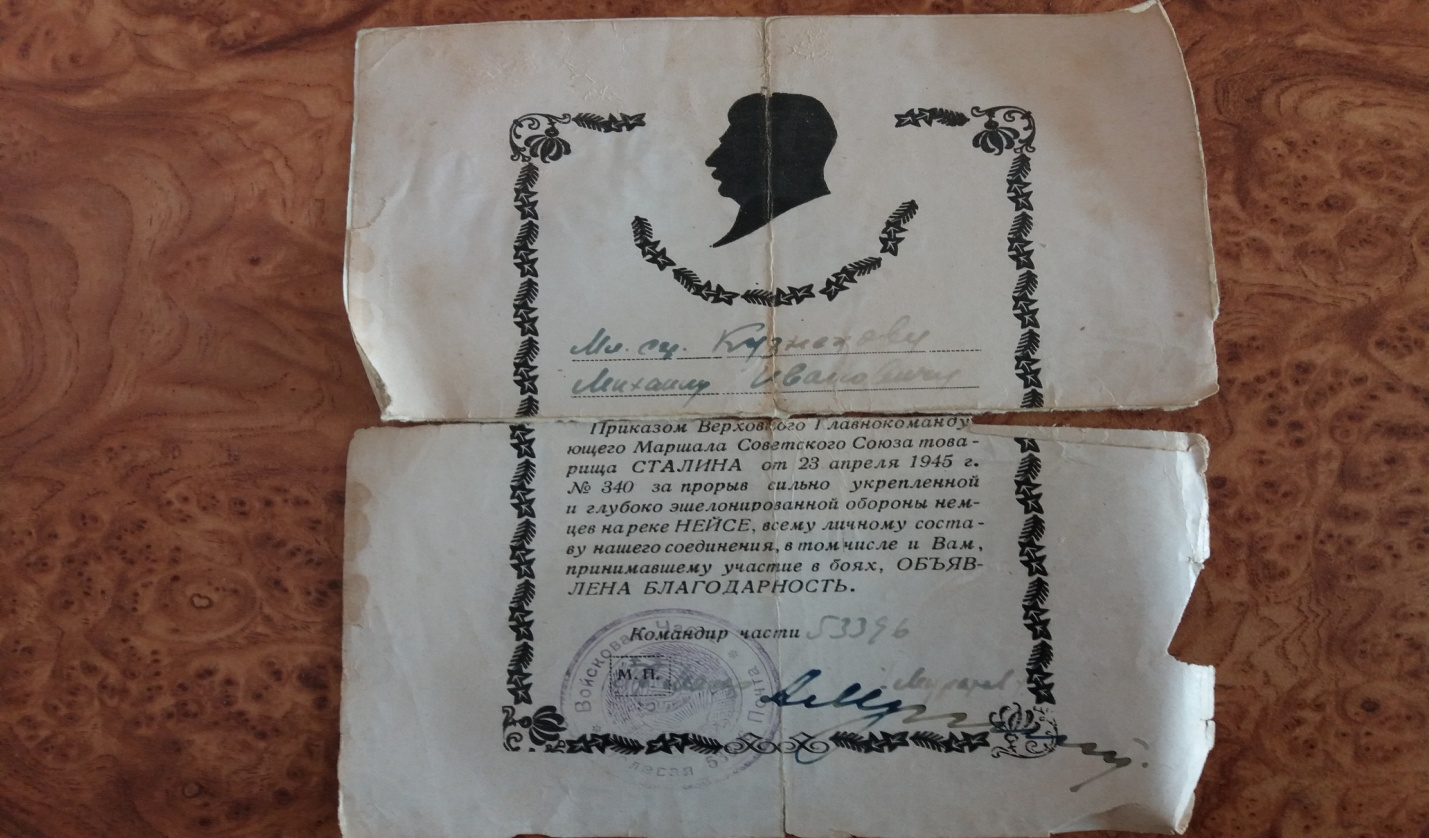 Мл. сц. Кузнецову
Михаилу Ивановичу
Приказом Верховного Главнокоманду
ющего Маршала Советского Союза това-
рища СТАЛИНА от 23 апреля 1945 г.
№ 340 за прорыв сильно укрепленной
и глубоко эшелонированной обороны нем-
цев на реке НЕЙСЕ, всему личному соста-
ву нашего соединения, в том числе и Вам,
принимавшему участие в боях, ОБЪЯВ-
ЛЕНА БЛАГОДАРНОСТЬ.
Командир части 53396
М. П.
Войсковая Часть * Почта